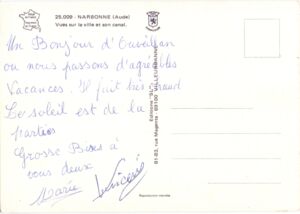 25.009 - NARBONNE (Aude)
Vues sur la ville et son canal.
Un Bonjour d'Ouveillan
ou nous passons d'agréables
Vacances. Il fait très chaud
Le soleil est de la
partie
Grosse Bises à
vous deux
Marie Vincent
Editions "SL", rue Magenta - 69100 VILLEURBANNE
Reproduction interdite